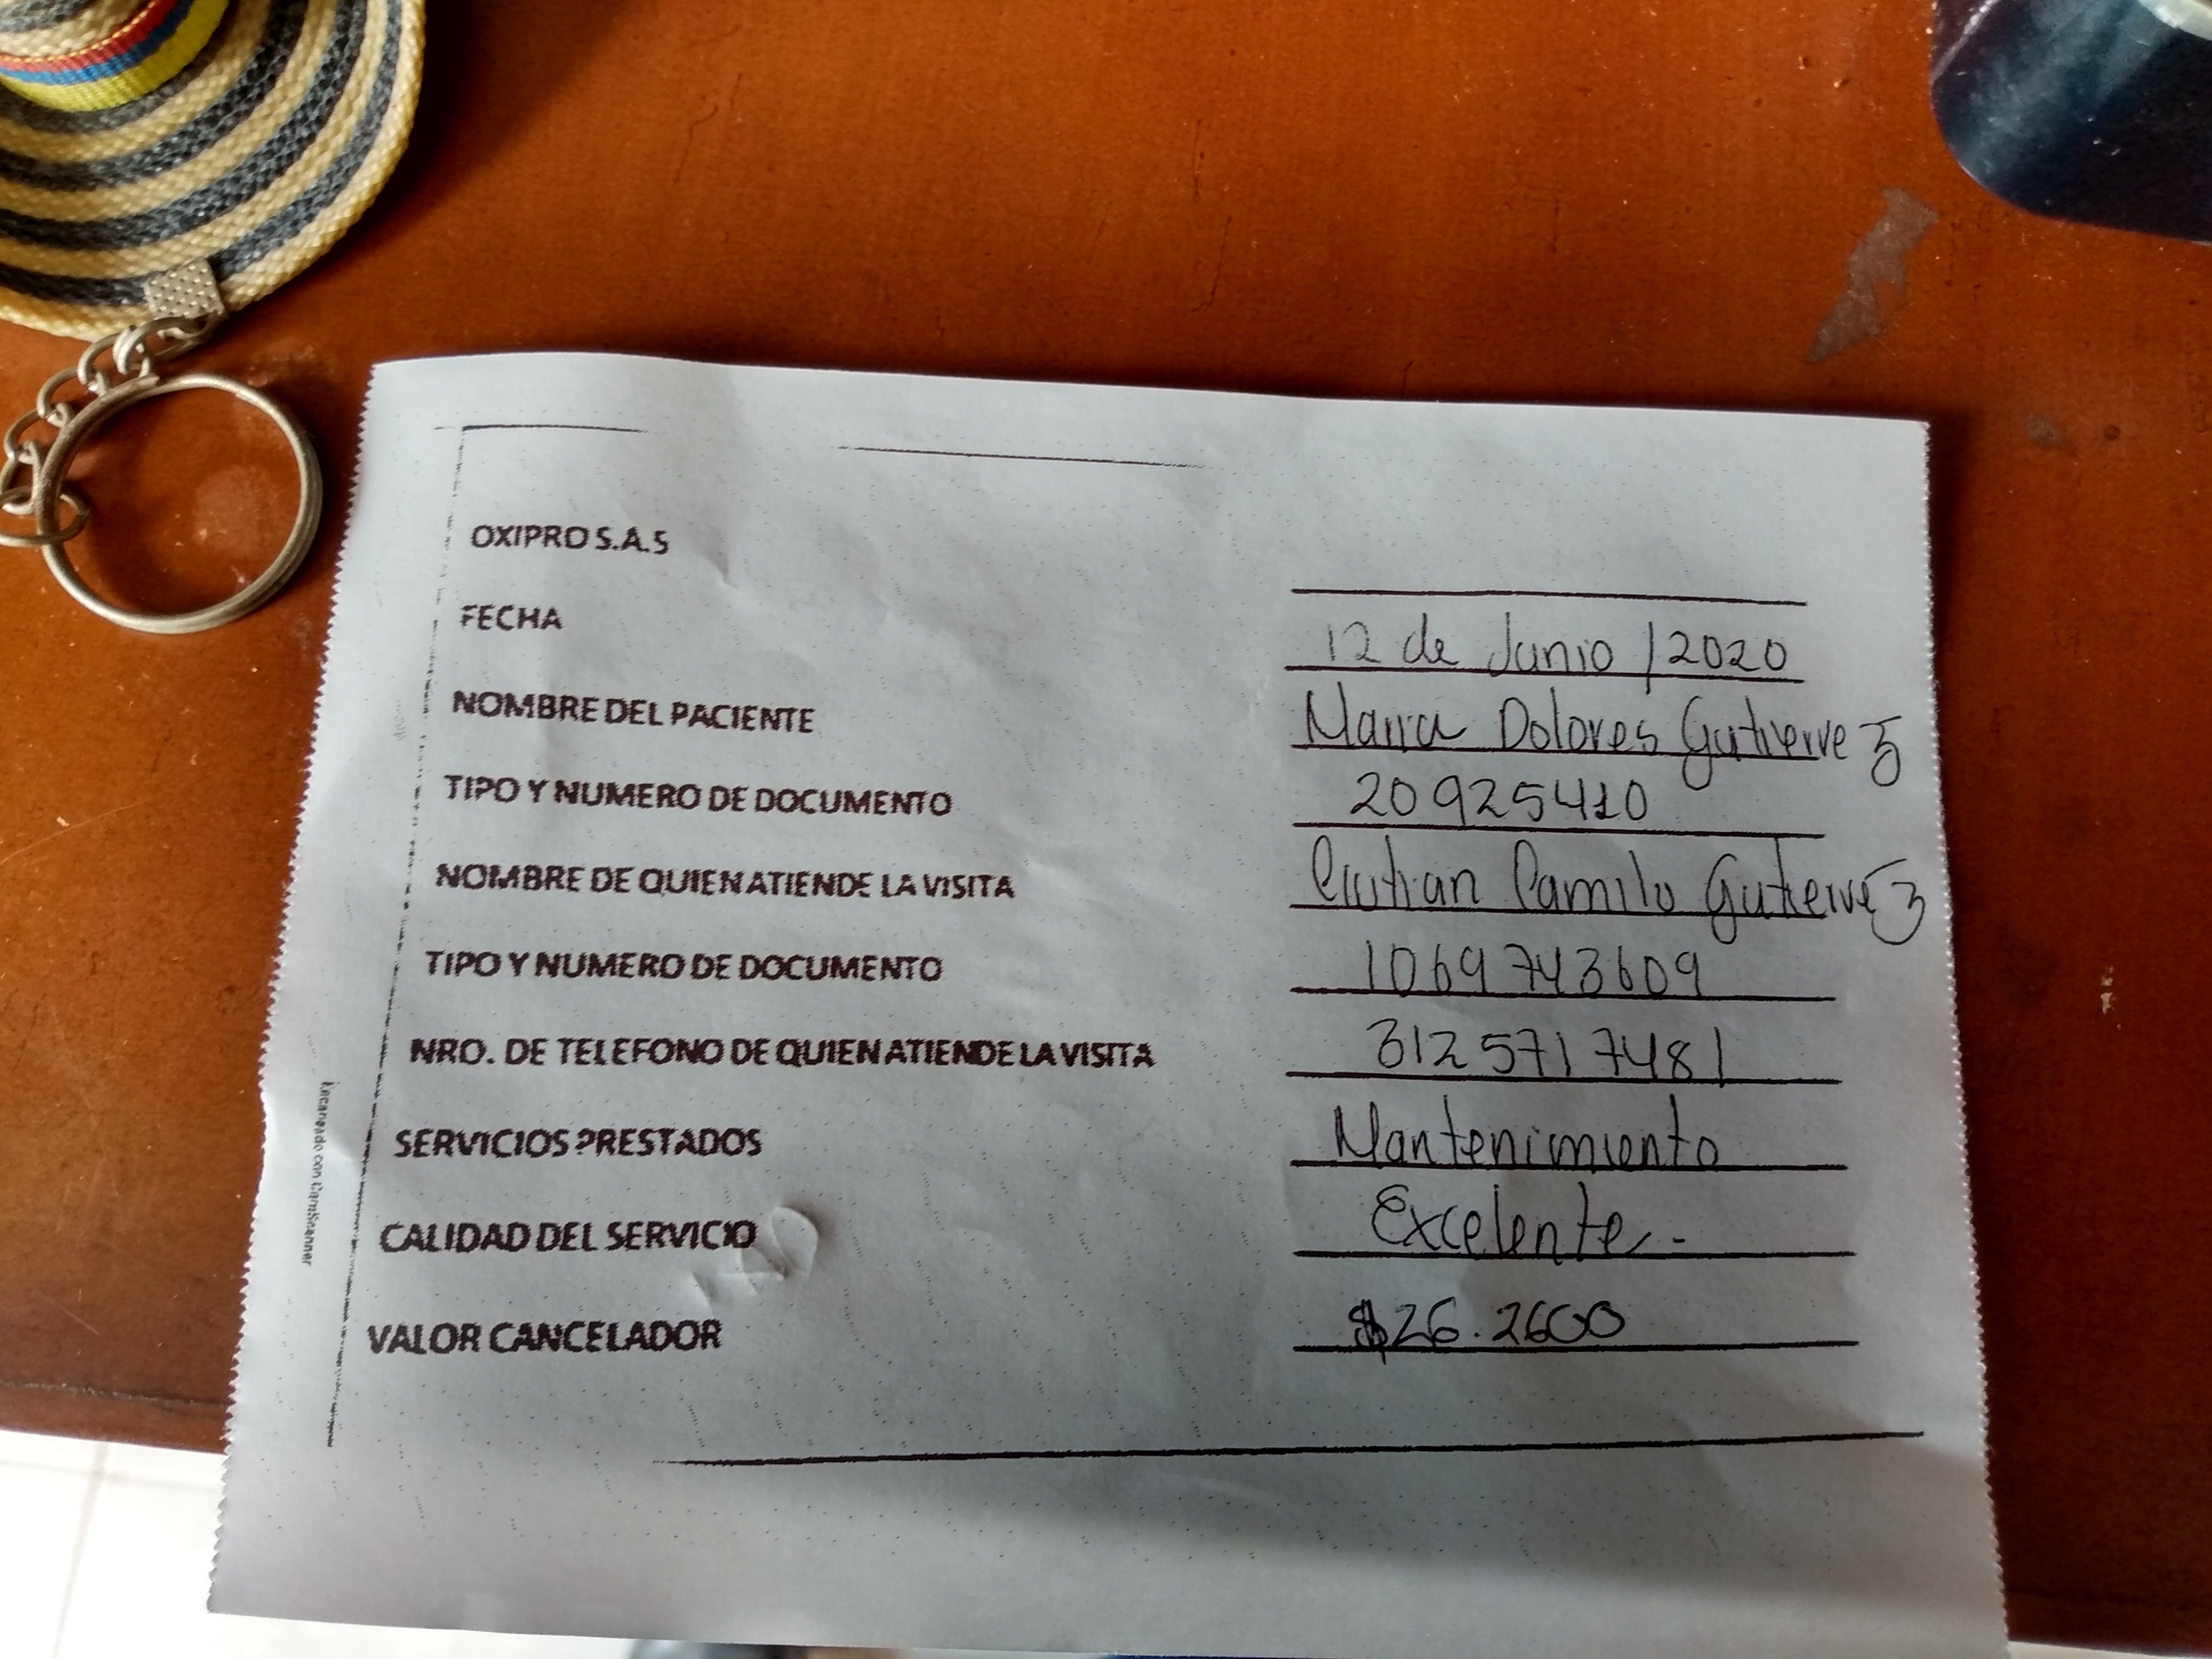 OXIPRO S.A.S
FECHA 12 de Junio / 2020
NOMBRE DEL PACIENTE Maria Dolores Gutierrez
TIPO Y NUMERO DE DOCUMENTO 20925410
NOMBRE DE QUIEN ATIENDE LA VISITA Cristian Camilo Gutierrez
TIPO Y NUMERO DE DOCUMENTO 1069743609
NRO. DE TELEFONO DE QUIEN ATIENDE LA VISITA 3125717481
SERVICIOS PRESTADOS Mantenimiento
CALIDAD DEL SERVICIO Excelente.-
VALOR CANCELADOR $26.2600
Escaneado con CamScanner